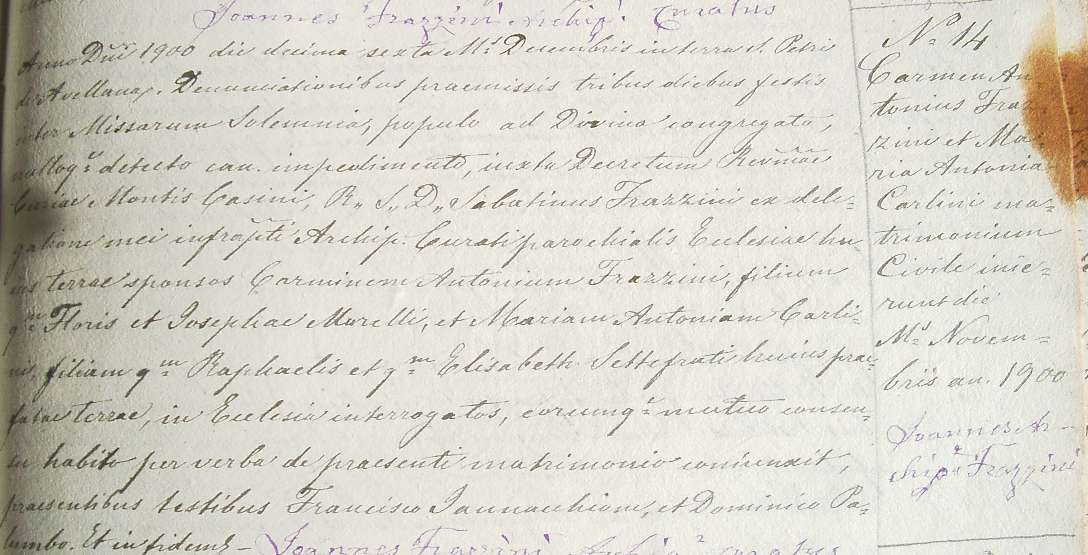 Joannes Frazzini Archip. Curatus
Anno Dñi 1900 die decima sexta Ms Decembris in terra S. Petri
de Avellana. Denunciationibus praemissis tribus diebus festis
inter Missarum Solemnia, populo ad Divina congregato,
nulloqe detecto can. impedimento, iuxta Decretum Revmae
Curiae Montis Casini, R. S. D. Sabatinus Frazzini ex dele=
gatione mei infrapti Archip. Curati parochialis Ecclesiae hu=
ius terrae sponsos Carminem Antonium Frazzini, filium
qm Floris et Josephae Morelli, et Mariam Antoniam Carli=
ni, filiam qm Raphaelis et qm Elisabeth Settefrati huius prae=
fatae terrae, in Ecclesia interrogatos, eorumqe mutuo consen=
su habito per verba de praesenti matrimonio coniunxit,
praesentibus testibus Francisco Iannacchione, et Dominico Pa=
lumbo. Et in fidem =
Joannes Frazzini Archip. Curatus
No 14
Carmen An
tonius Fraz
zini et Ma
ria Antonia
Carlini ma=
trimonium
Civile inie=
runt die
Ms Novem=
bris an. 1900
Joannes Ar=
chip. Frazzini